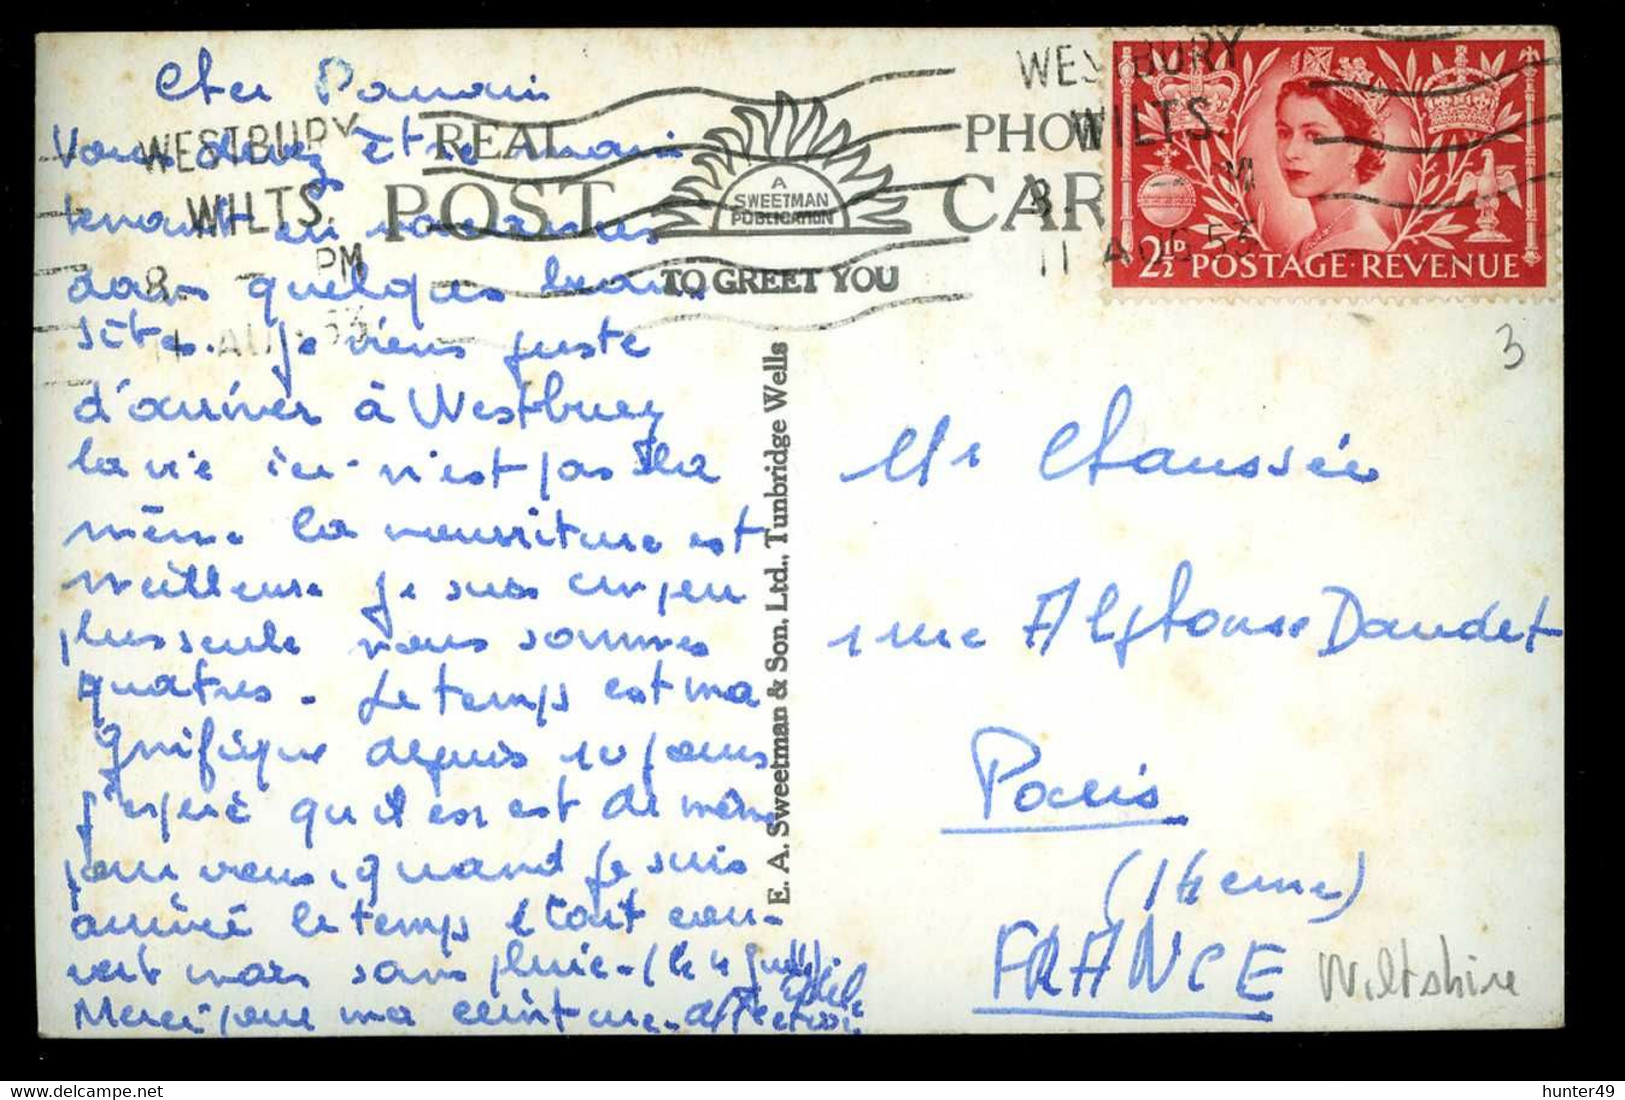 Cher Parrain
Vous devez être main
tenant en vacances
dans quelques beaux
sites. Je viens juste
d'arriver à Westbury
la vie ici n'est pas la
même la nourriture est
meilleure je suis un peu
plus seule nous sommes
quatres. Le temps est ma
gnifique depuis 10 jours
j'espère qu'il en est de même
pour vous, quand je suis
arrivé le temps était cou-
vert mais sans pluie. (le 4 juillet).
Merci pour ma ceinture.
WESTBURY
WILTS.
8 - PM
11 AUG 53
REAL PHOTO
POST CARD
A
SWEETMAN
PUBLICATION
TO GREET YOU
WESTBURY
WILTS.
8 - PM
11 AUG 53
2½D POSTAGE·REVENUE
3
E. A. Sweetman & Son, Ltd., Tunbridge Wells
Mr Chaussée
1 rue Alphonse Daudet
Paris
(14eme)
FRANCE
Wiltshire
hunter49